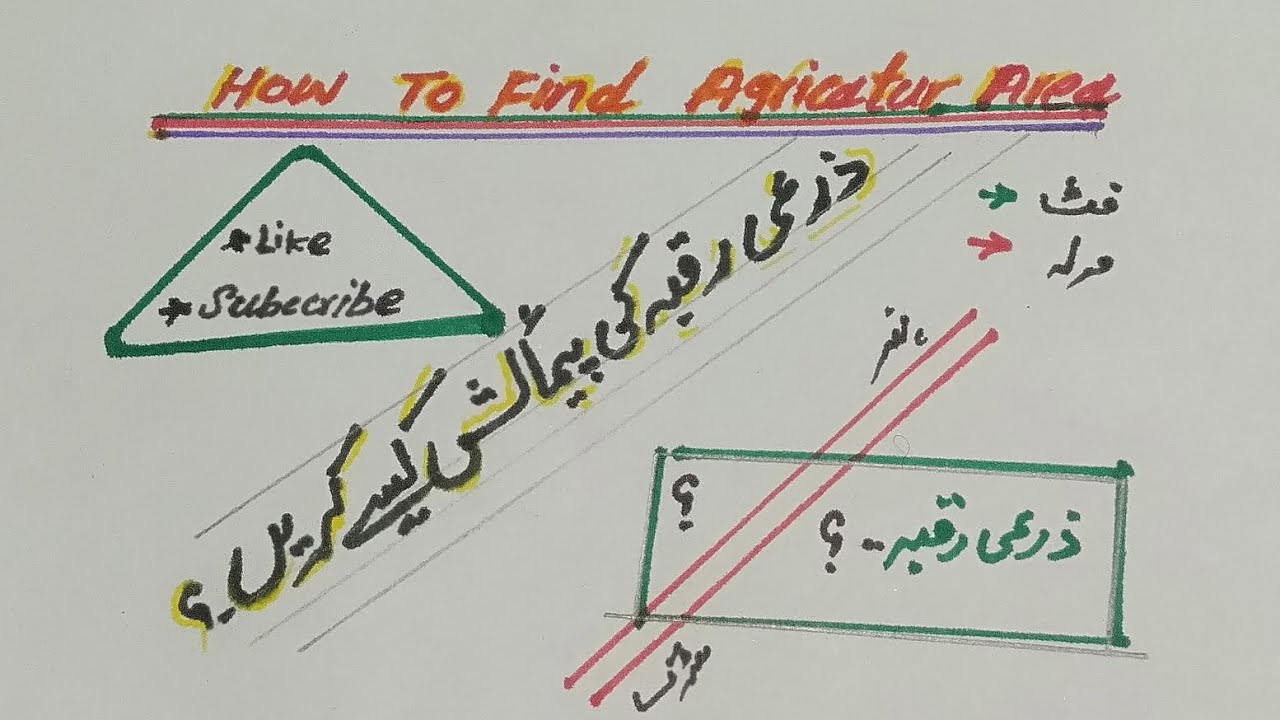 How To Find Agricatur Area
* Like
* Subscribe
ذرعی رقبہ کی پیمائش کیسے کریں ؟
فٹ
مرلہ
؟
ذرعی رقبہ .. ؟